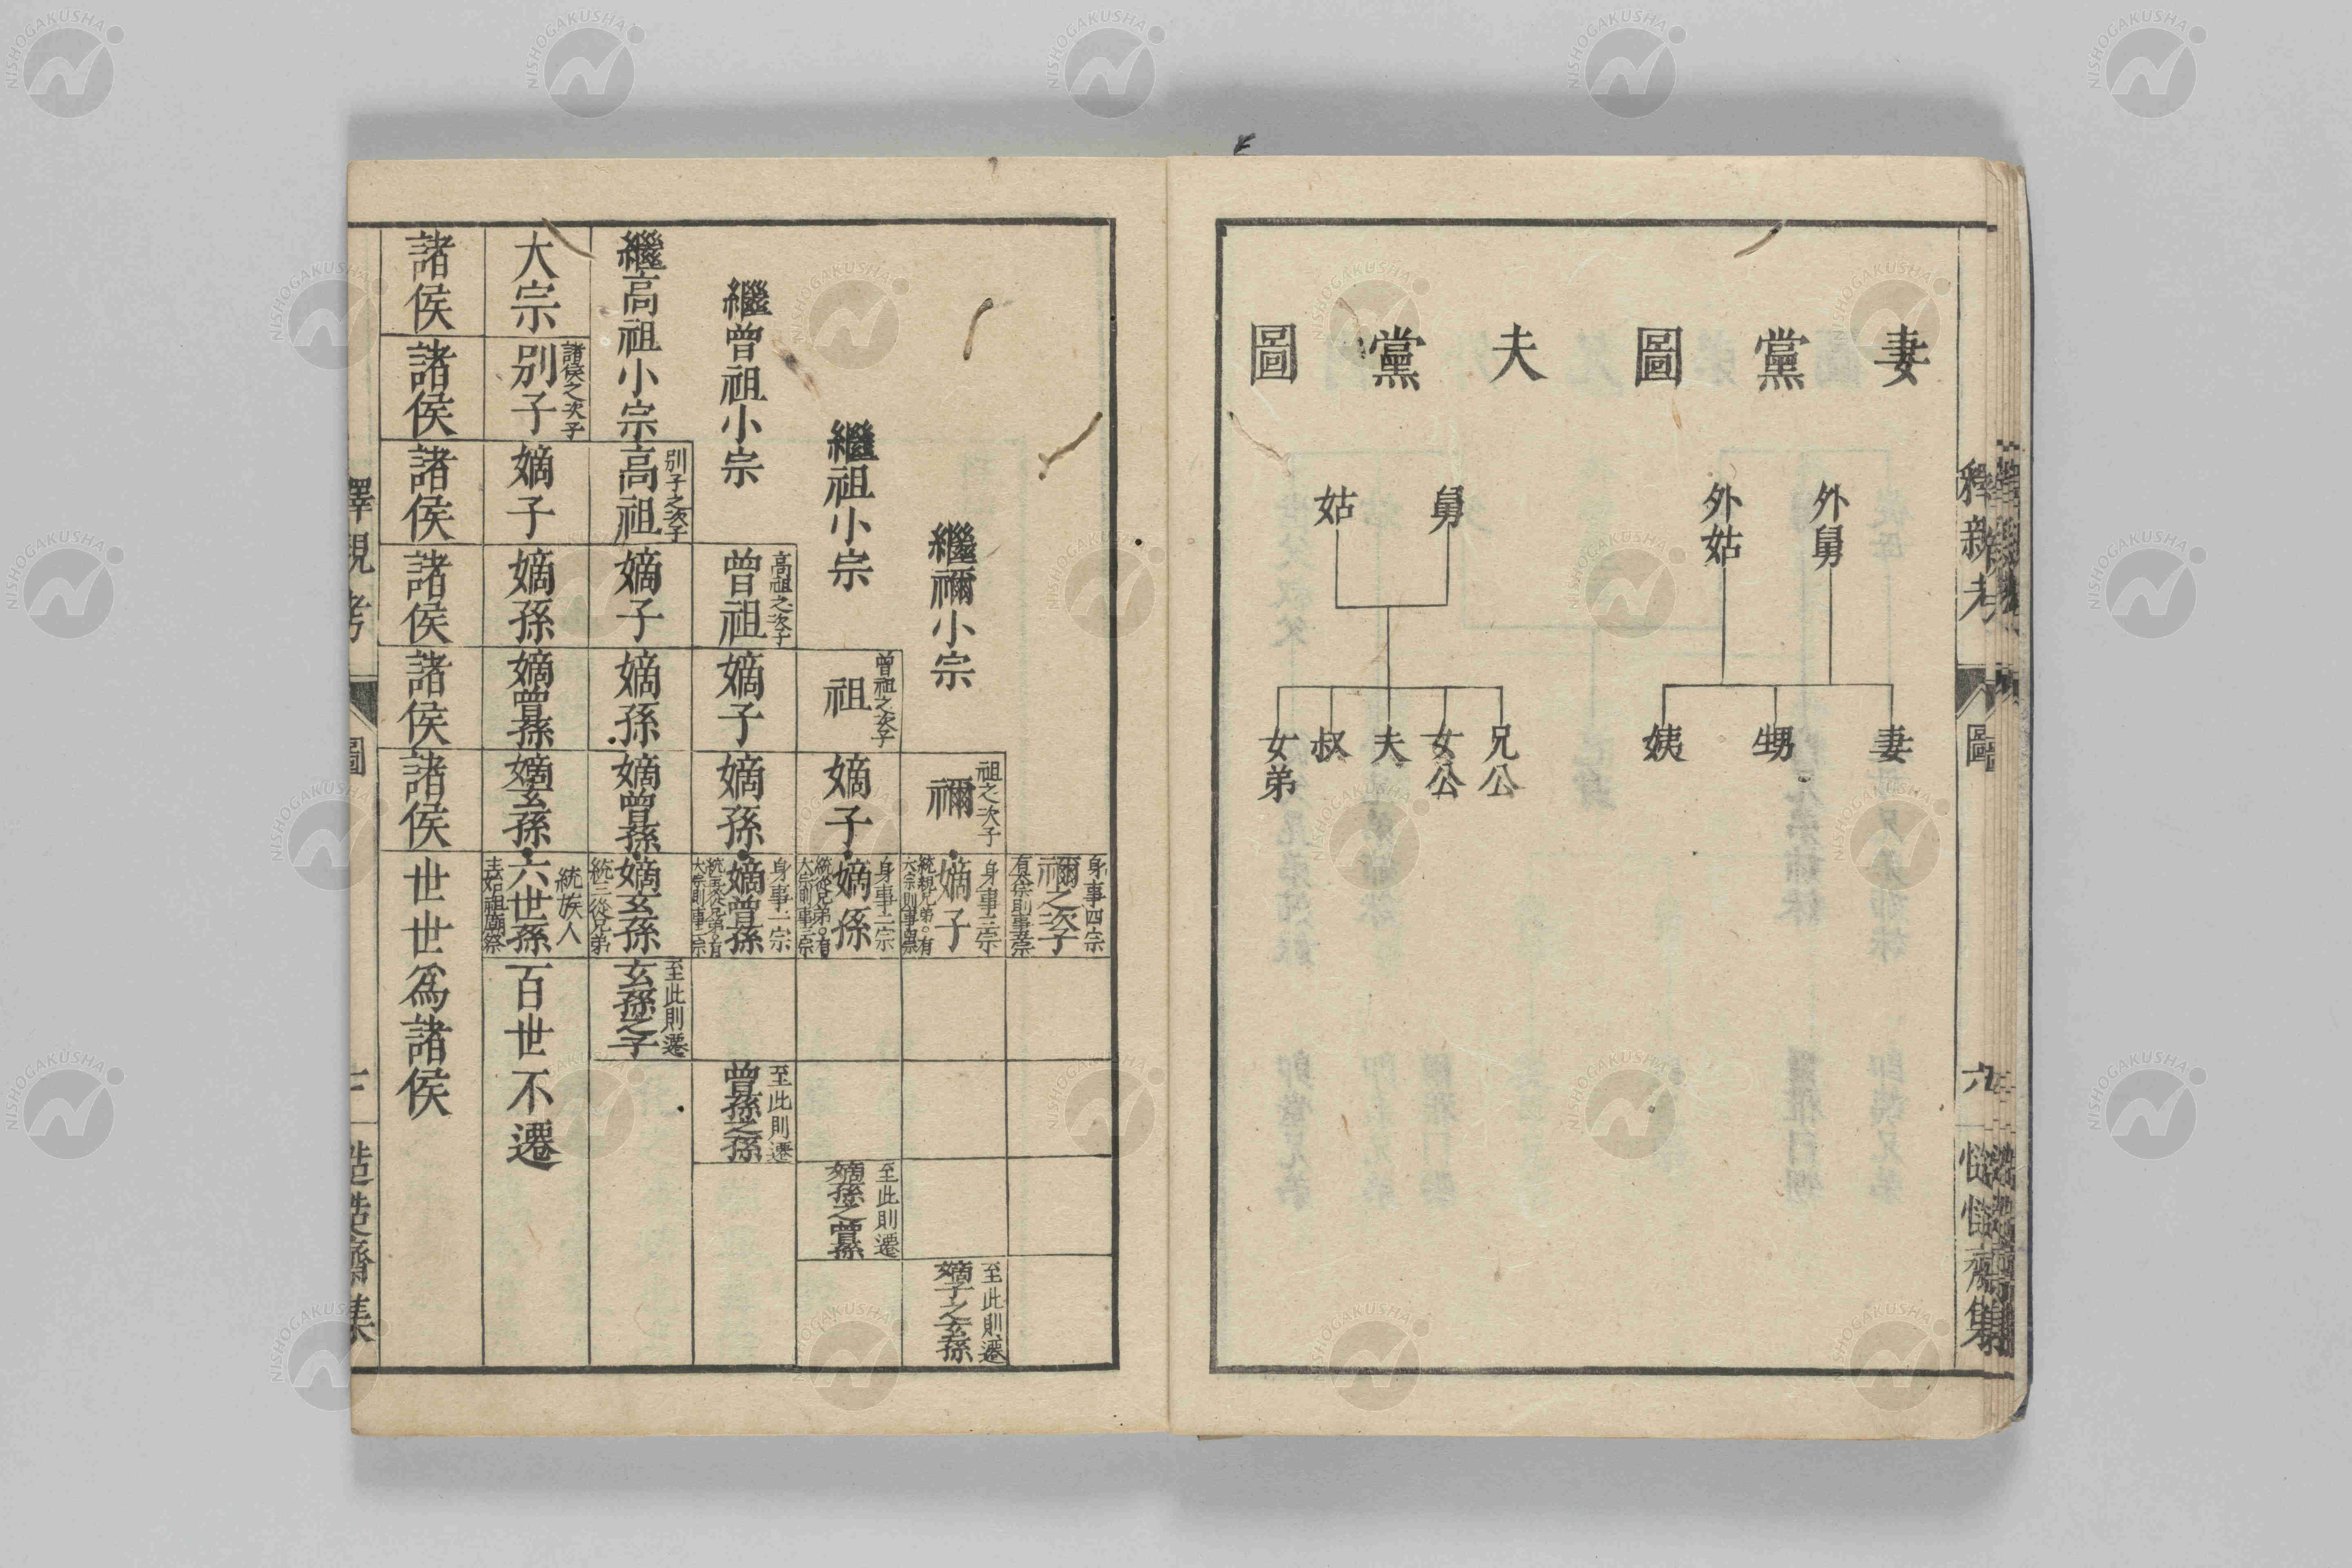 妻黨圖
外舅
外姑
妻
甥
姨
夫黨圖
舅
姑
兄公
女公
夫
叔
女弟
圖
六
集
身事四宗
禰之次子
有大宗則事五宗
繼禰小宗
祖之次子
禰
身事三宗
嫡子
統親兄弟○有
大宗則事四宗
至此則遷
嫡子之玄孫
繼祖小宗
曾祖之次子
祖
嫡子
身事二宗
嫡孫
統從兄弟○有
大宗則事三宗
至此則遷
嫡孫之曾孫
繼曾祖小宗
高祖之次子
曾祖
嫡子
嫡孫
身事一宗
嫡曾孫
統再從兄弟○有
大宗則事二宗
至此則遷
曾孫之孫
繼高祖小宗
別子之次子
高祖
嫡子
嫡孫
嫡曾孫
嫡玄孫
統三從兄弟
至此則遷
玄孫之子
大宗
諸侯之次子
別子
嫡子
嫡孫
嫡曾孫
嫡玄孫
統族人
六世孫
主始祖廟祭
百世不遷
諸侯
諸侯
諸侯
諸侯
諸侯
諸侯
世世爲諸侯
釋親考
圖
七
慥慥齋集
NISHOGAKUSHA